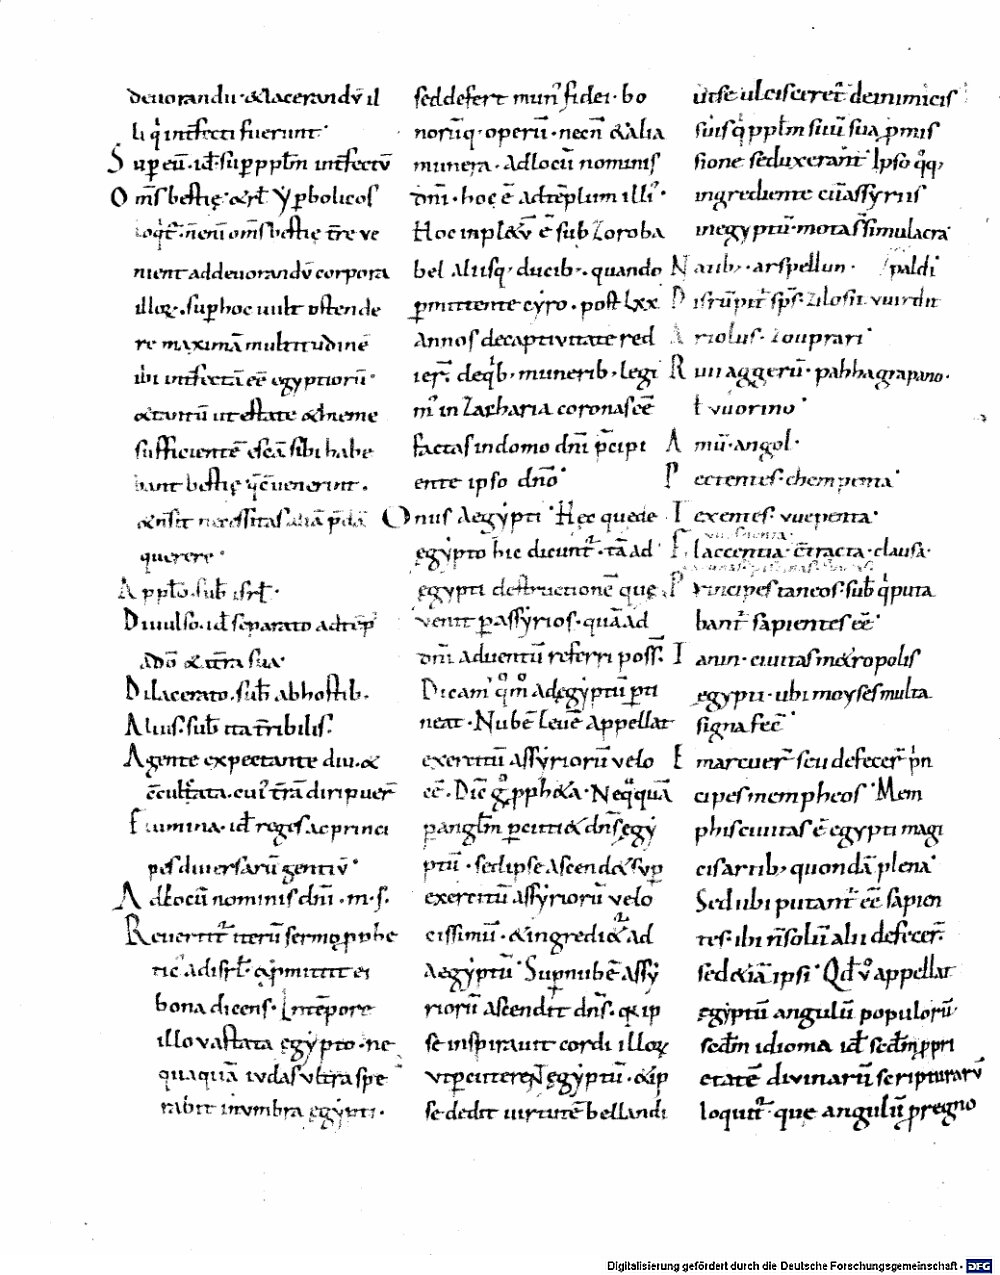 deuorandū · & lacerandū il
li q̇ int̄fecti fuerunt ·
Sup eū · id ÷ sup pplm int̄fectū
Om̄s bestię · & rł · yꝑbolicos
loq̄t · n̄ eni om̄s bestię t̄re ve
nient ad deuorandū corpora
illoꝝ · suꝑ hoc uult ostende
re maximā multitudinē
ibi int̄fectā eē egyptiorū ·
& tantū ut estate & hieme
sufficientē escā sibi habe
bant bestię q̄ uenerint ·
& n̄ sit necessitas aliā p̄dā
querere ·
Applō · sub̄ isrł ·
Diuulso · id ÷ separato a
a dō & t̄ra sua ·
Dilacerato · sub̄ ab hostib ·
Alius · sub̄ ita t̄ribilis ·
Agente expectante diu · &
c̄cultata · cui t̄rā diripuer̄
Flumina · id ÷ reges ac princi
pes diuersarū gentiū ·
Ad locū nominis dn̄i · m · s ·
Reuertit̄ iterū sermo pphe
ticꝰ ad isrł · & ꝓmittit ei
bona dicens · In tēpore
illo vastata egypto · ne
quaquā iudas ultra spe
rabit in umbra egypti ·
sed defert munꝰ fidei · bo
norūq · operū · necn̄ & alia
munera · Ad locū nominis
dn̄i · hoc ē ad tēplum illiꝰ ·
Hoc inpl&ū ē sub Zoroba
bel aliisq · ducib · quando
ꝑmittente cyro · post lxx
annos de captiuitate red
ier̄ · de qb · munerib · legi
mꝰ in Zacharia coronas eē
factas in domo dn̄i p̄cipi
ente ipso dn̄o ·
Onus Aegypti · Hęc que de
egypto hic dicunt̄ · tā ad
egypti destructionē que
venit ꝑ assyrios · quā ad
dn̄i aduentū referri poss̄ ·
Dicamꝰ q̊m̊ ad egyptū ꝑti
neat · Nubē leuē appellat
exercitū assyriorū velo
cē · Dic̄ g̊ pph&a · Neq̊quā
ꝑ angl̄m ꝑcuti& dn̄s egy
ptū · sed ipse ascend& suꝑ
exercitū assyriorū velo
cissimū · & ingredi&ur ad
Aegyptū · Suꝑ nubē assy
riorū ascendit dn̄s · q̇ ip
se inspirauit cordi illoꝝ
ut ꝑcuterent egyptū · & ip
se dedit uirtutē bellandi
ut se ulcisceret̄ de inimicis
suis q̇ pplm suū sua ꝓmis
sione seduxerant̄ · Ipso q̊q,
ingrediente cū assyriis
in egyptū · mota st̄ simulacra
Naulū · arspellun · spaldi
Disrūpit̄ sps̄ · zilosit vuirdit
Ariolus · zouprari ·
Riui aggerū · pahhagrapano ·
ł vuorino ·
Amū · angol ·
Pectentes · chempenta ·
Texentes · vuepenta ·
Flaccentia · c̄tracta · clausa ·
Principes taneos · sub̄ q̇ puta
bant̄ sapientes eē ·
Tanin · ciuitas m&ropolis
egypti · ubi moyses multa
signa fec̄ ·
Emarcuer̄ seu defecer̄ ṗn
cipes mempheos · Mem
phis ciuitas ē egypti magi
cis artib, quondā plena ·
Sed ubi putant̄ eē sapien
tes · ibi n̄ solū alii defecer̄ ·
sed & iā ipsi · Qd̄ v̊ appellat
egyptū angulū populorū
scdm idioma id ÷ scdm ꝓpri
etatē diuinarū scripturarū
loquit̄ · que angulū ꝓ regno